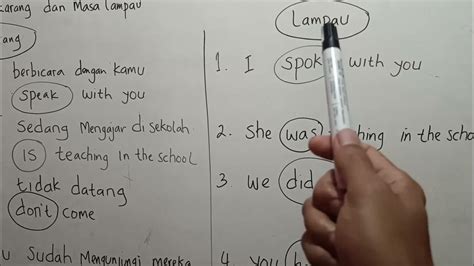 karang dan Masa lampau
ang
berbicara dengan kamu
speak with you
Sedang Mengajar di sekolah
IS teaching in the school
tidak datang
don't come
u Sudah Mengunjungi mereka
Lampau
1. I spok with you
2. She was hing in the scho
3. we did
4. you h